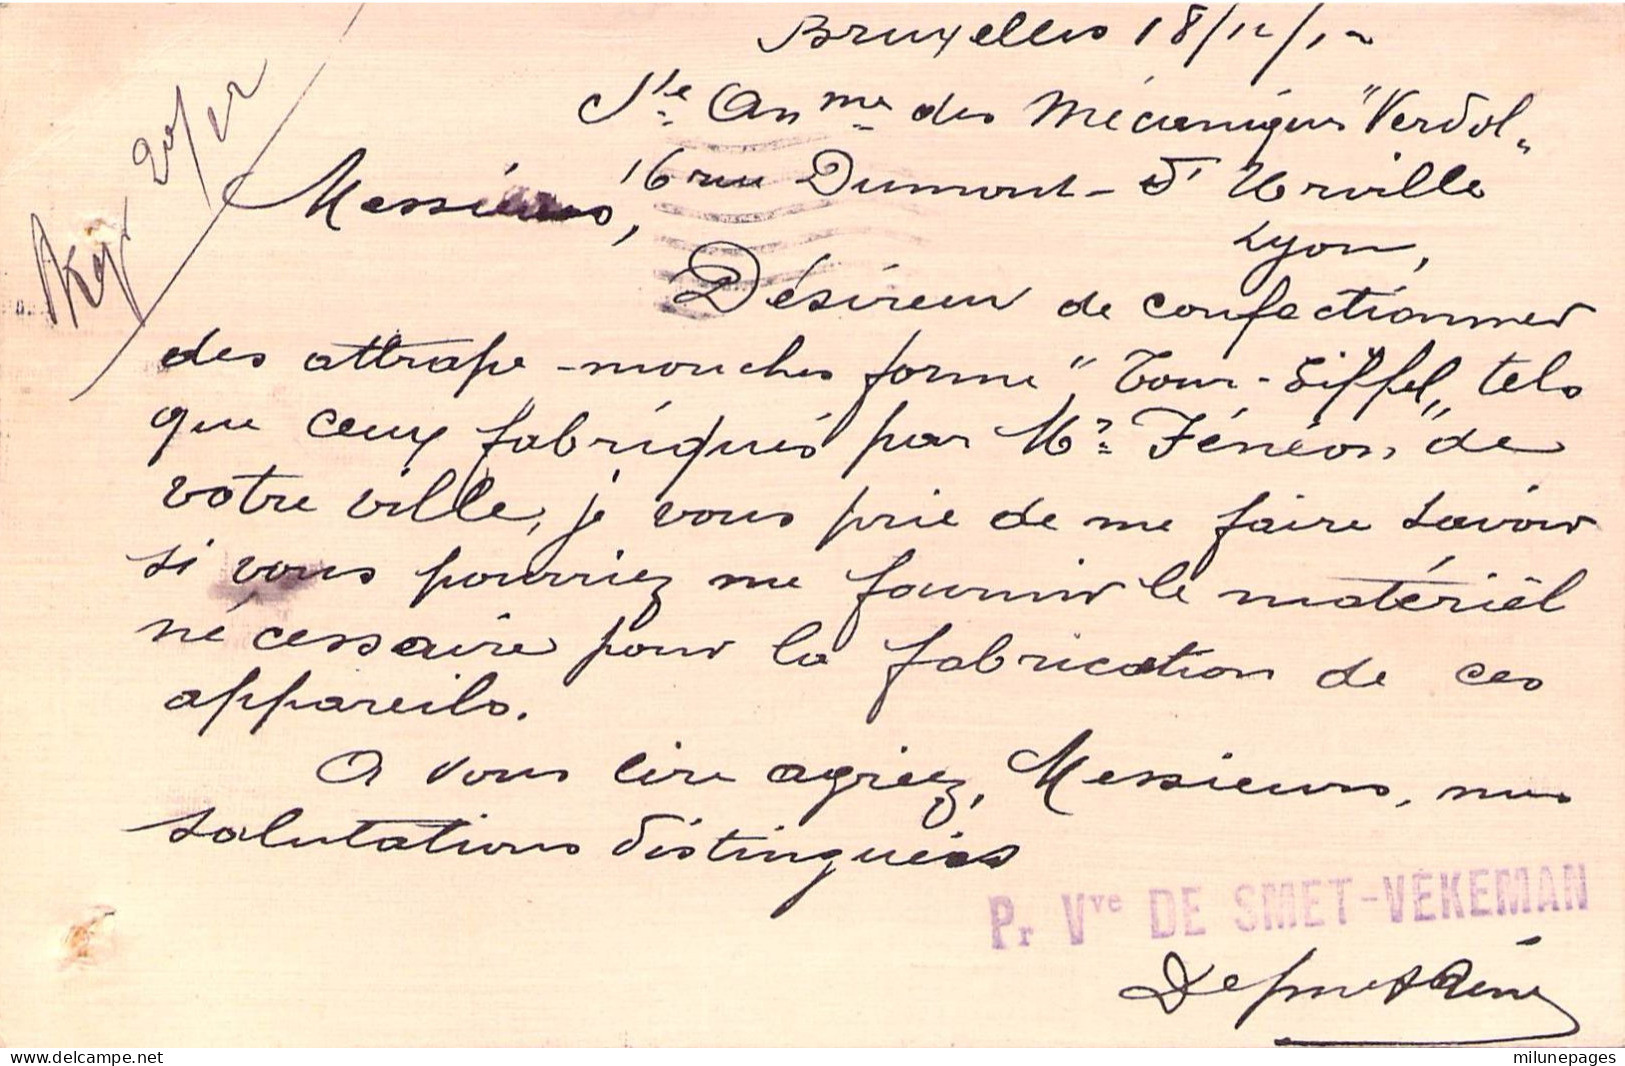 Bruxelles 18/12/12
Sté An.me des Mécaniques "Verdol"
16 rue Dumont-d'Urville
Messieurs,
Lyon,
20/12
Désireux de confectionner
des attrape-mouches forme "Tour-Eiffel" tels
que ceux fabriqués par Mr. Fénéon, de
votre ville, je vous prie de me faire savoir
si vous pourriez me fournir le matériël
nécessaire pour la fabrication de ces
appareils.
A vous lire agréez, Messieurs, nos
salutations distinguées
Pr Vve DE SMET-VÉKEMAN
milunepages